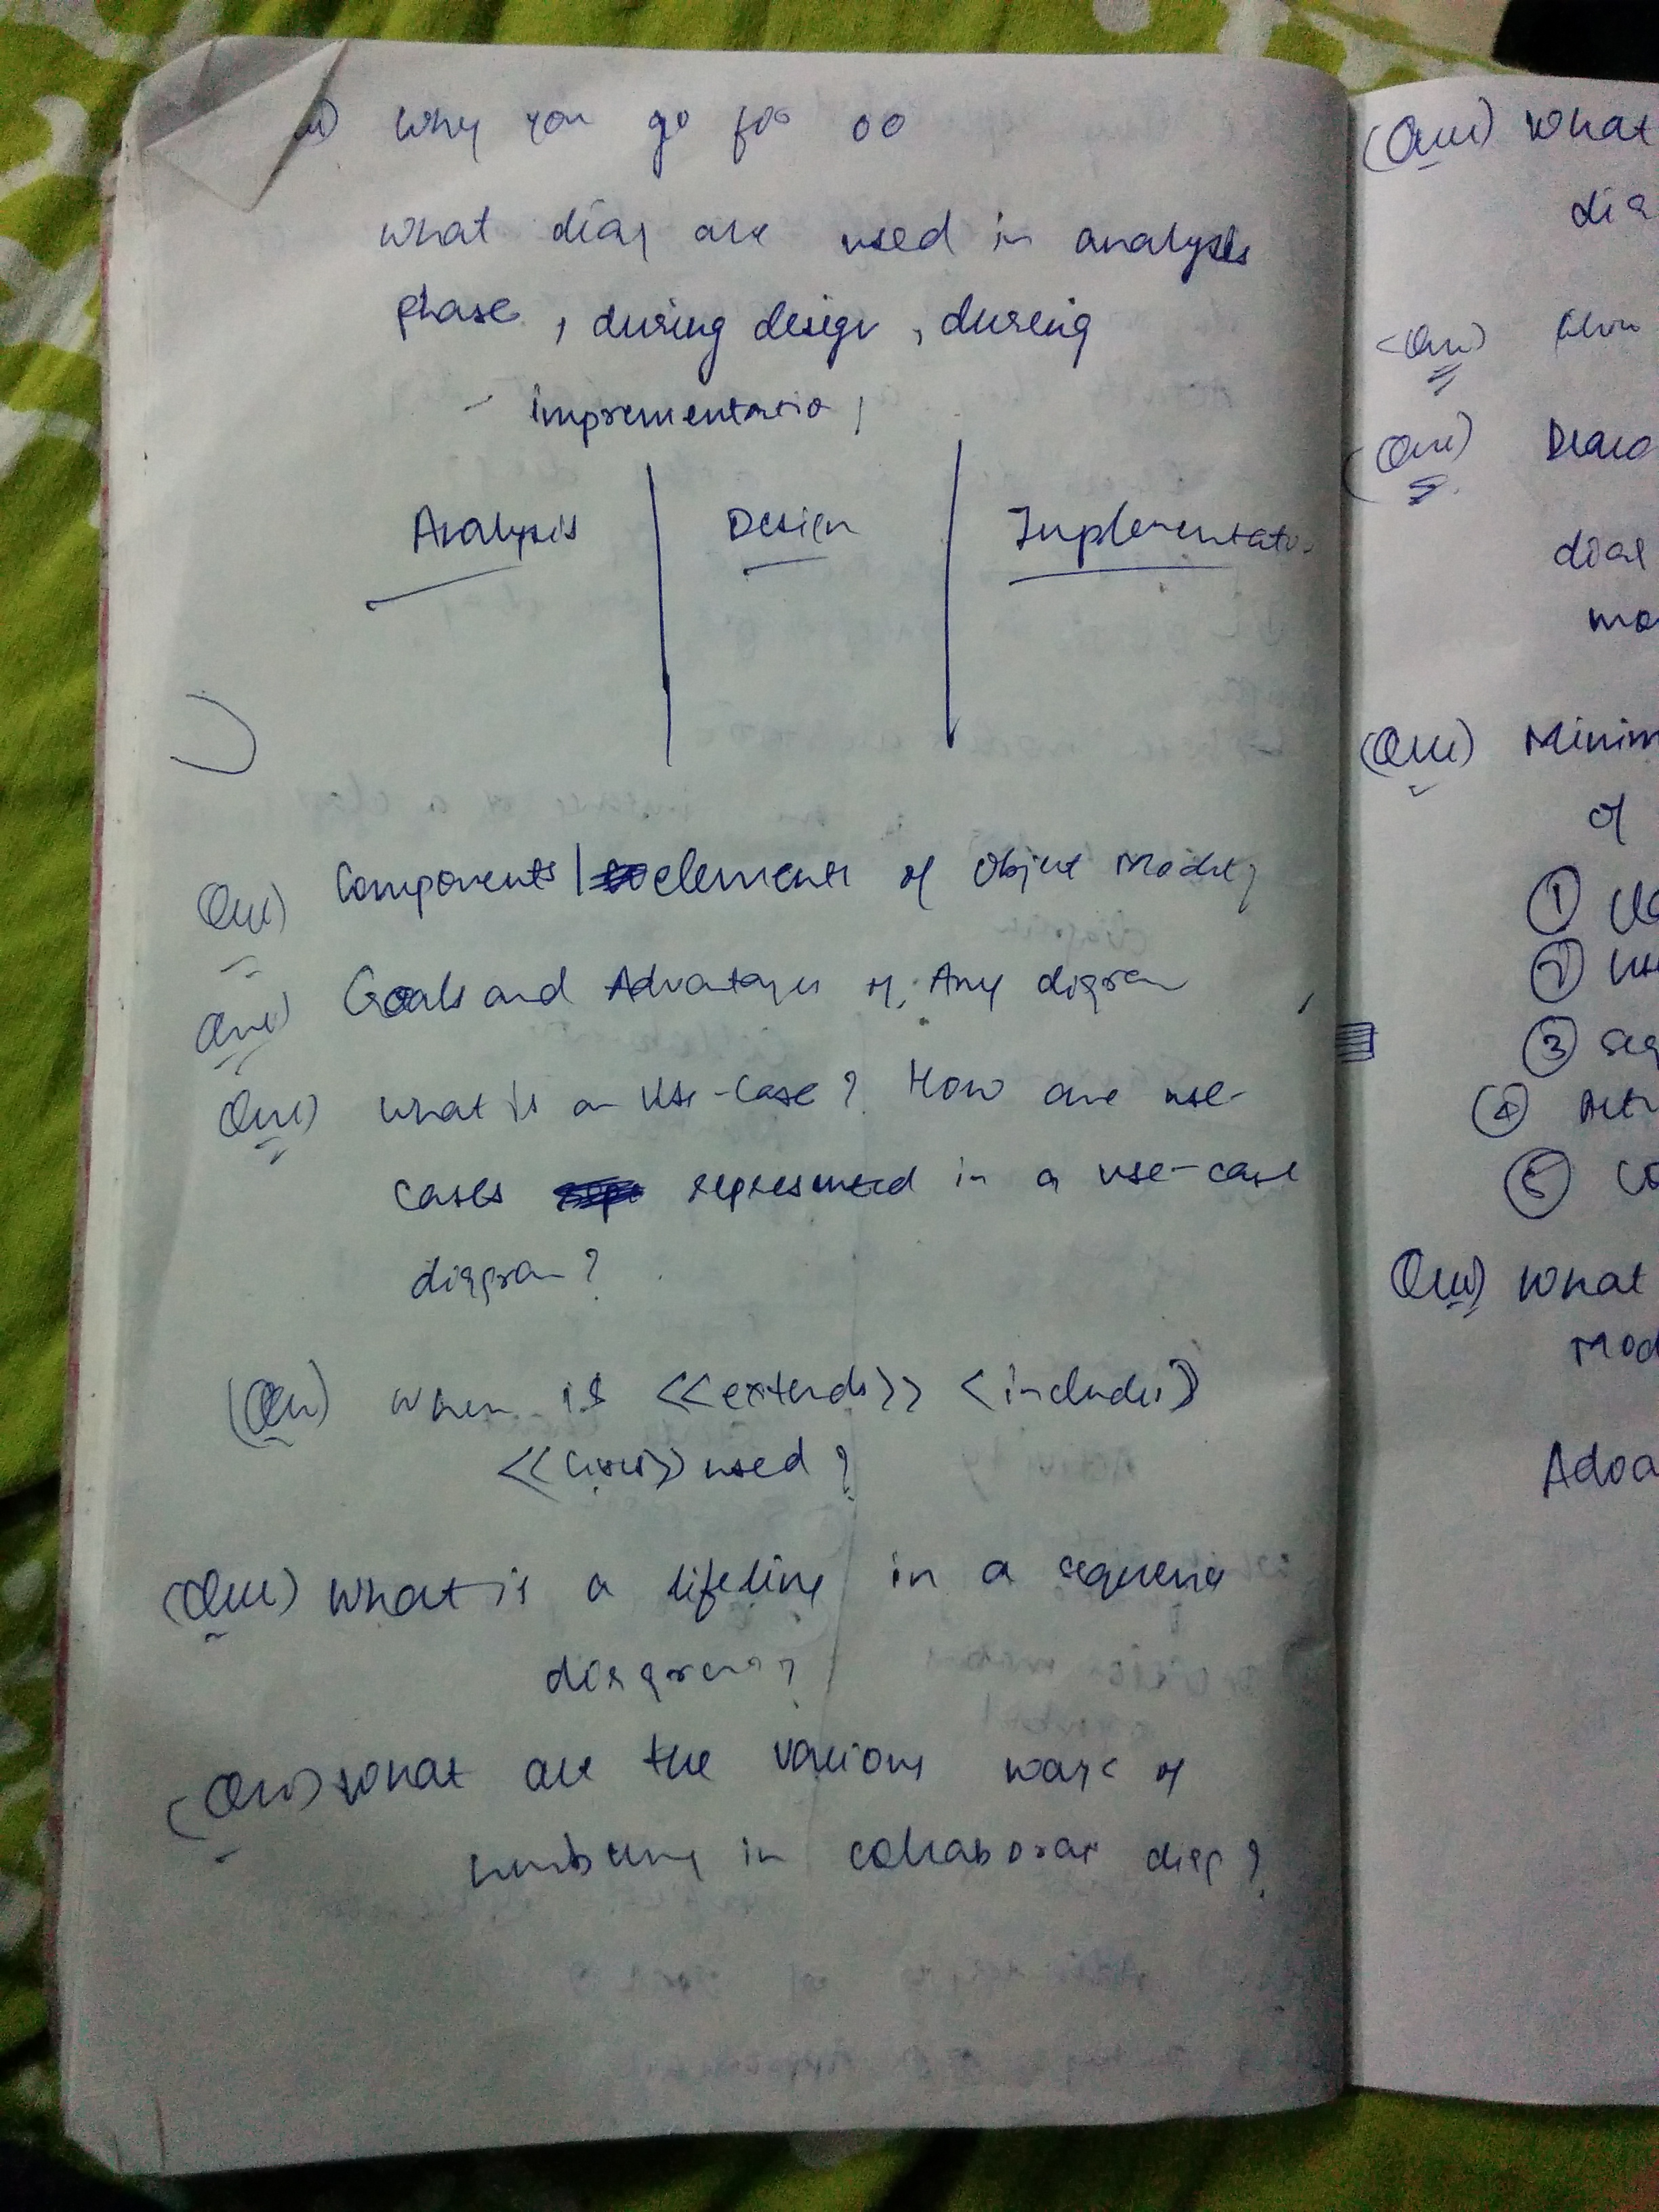 Why you go for OO
what diag are used in analysis
phase, during design, during
- imprementatio,
Analysis | Design | Implementatio
Que) Components / elements of Object Model,
Que) Goals and Advantages of Any digram
Que) What is an Use-Case? How are use-
cases represented in a use-case
diagram?
(Que) When is <<extends>> <includes>>
used?
(Que) What is a lifeline in a sequence
diagram?
(Que) What are the various ways of
numbering in collaborat diag?
(Que) What
dia
(Que)
(Que) Draw
diag
mo
(Que) Minim
of
① Cla
② Use
③ Seq
④ Act
⑤ Co
Que) What
Mod
Adva